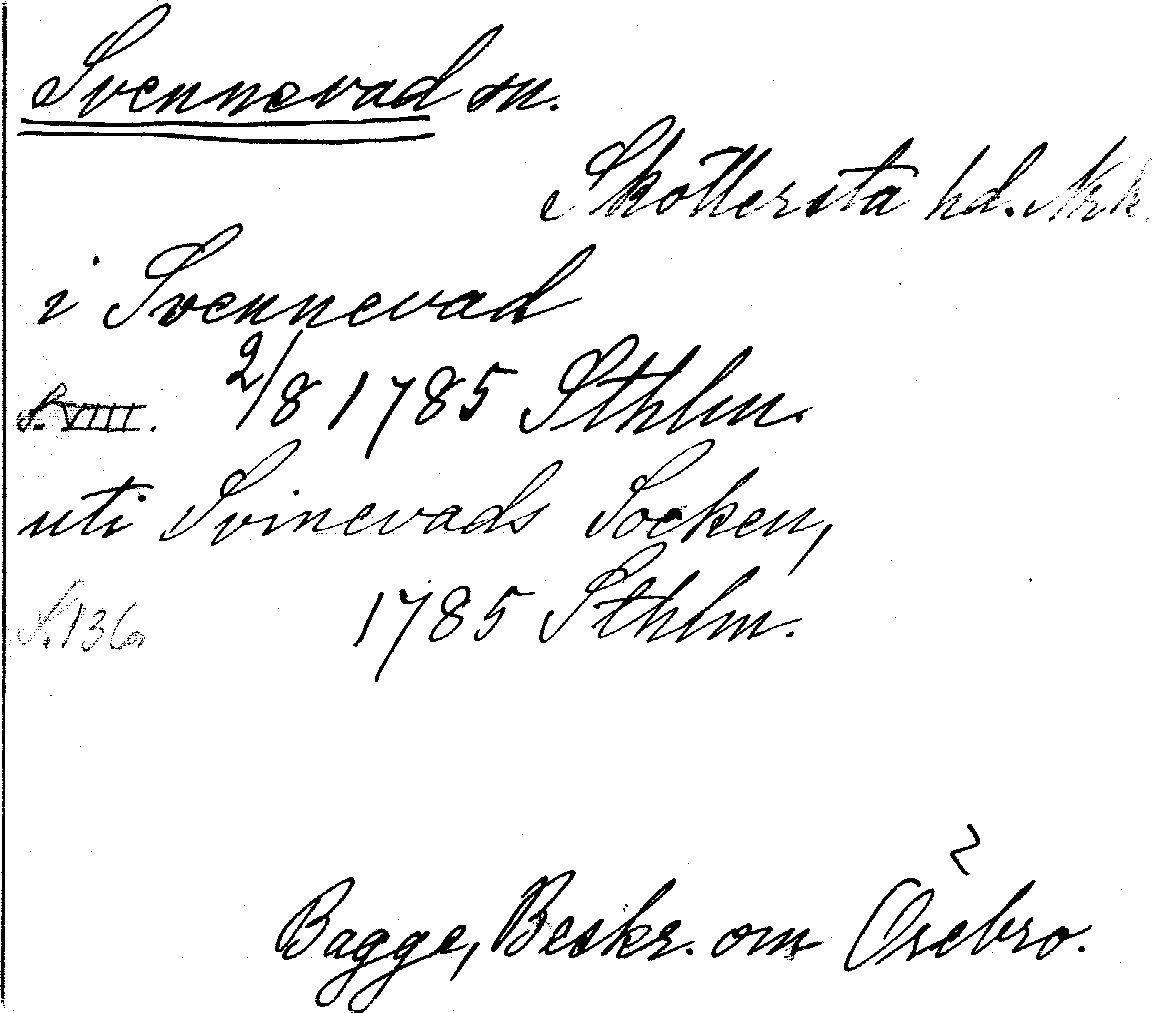 Svennevad sn.
Sköllersta hd. Nrk.
i Svennevad
S. VIII. 2/8 1785 Sthlm.
uti Svinevads Socken,
S. 136. 1785 Sthlm.
Bagge, Beskr. om Örebro.